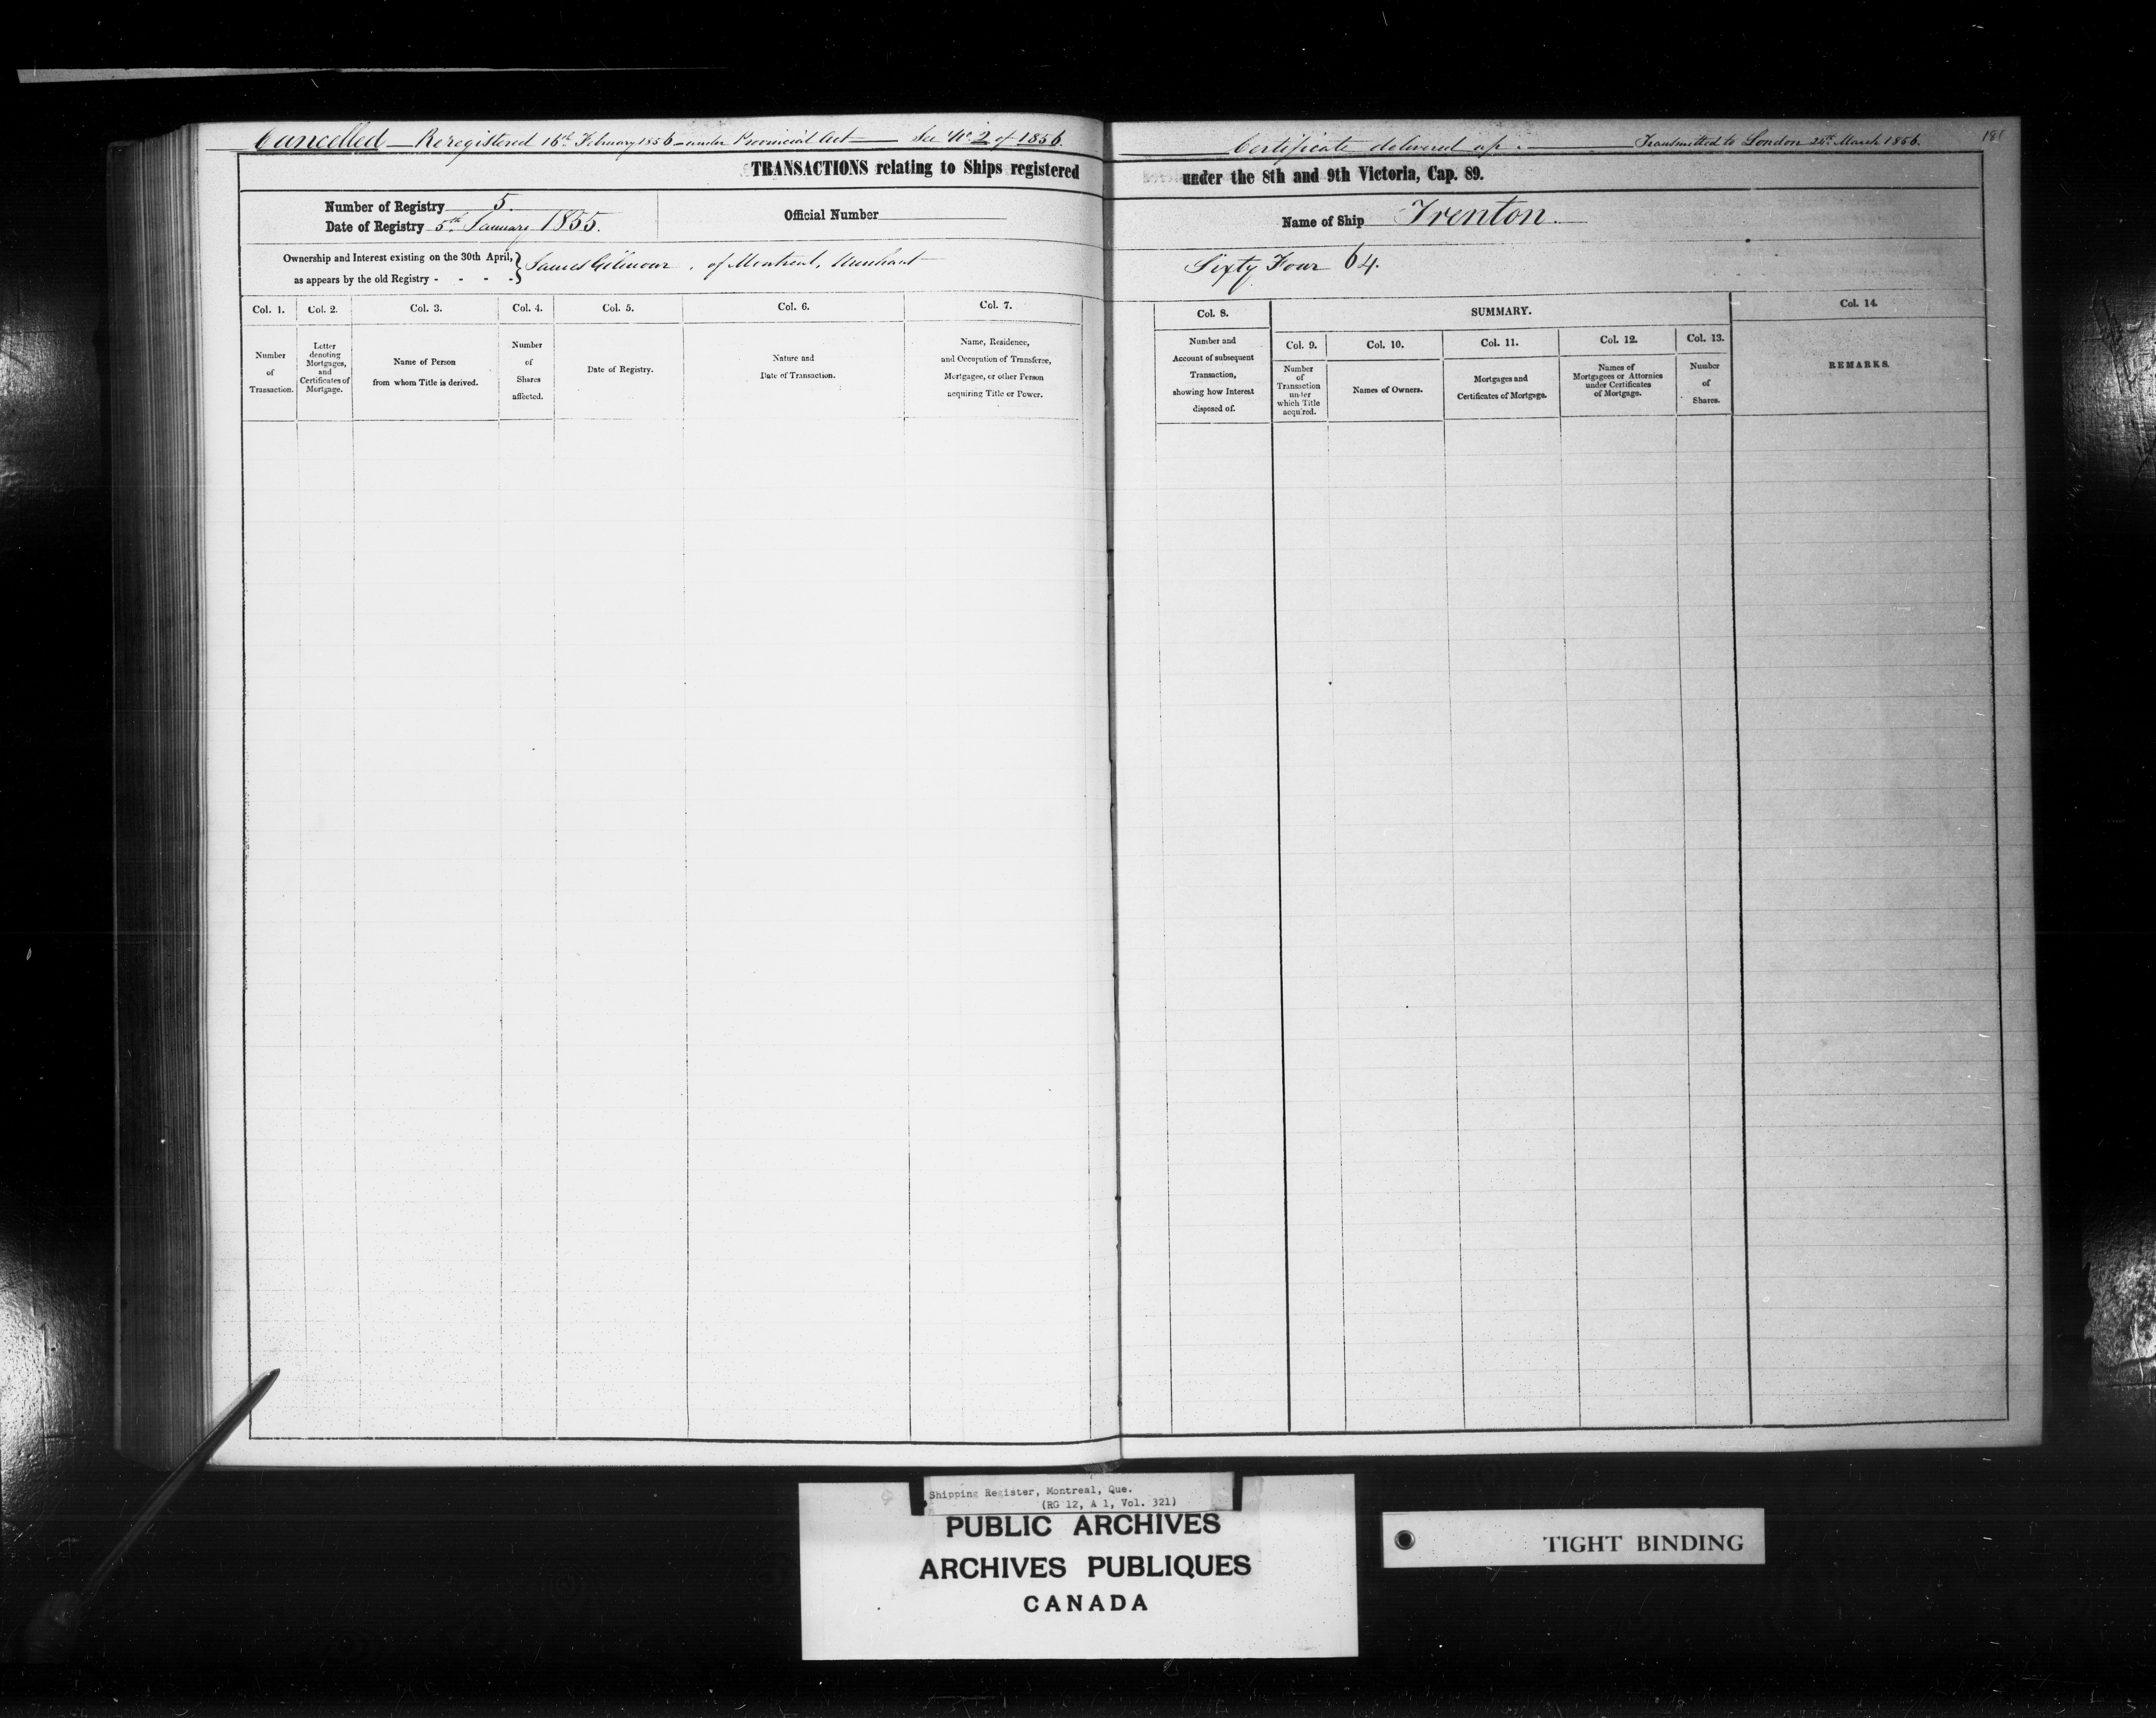 Cancelled — Reregistered 16th February 1856 — under Provincial Act — See No. 2 of 1856.
TRANSACTIONS relating to Ships registered
Number of Registry 5.
Date of Registry 5th January 1855.
Official Number
Ownership and Interest existing on the 30th April,
as appears by the old Registry - - - -
James Gilmour, of Montreal, Merchant
Col. 1.
Col. 2.
Col. 3.
Col. 4.
Col. 5.
Col. 6.
Col. 7.
Number
of
Transaction.
Letter
denoting
Mortgages,
and
Certificates of
Mortgage.
Name of Person
from whom Title is derived.
Number
of
Shares
affected.
Date of Registry.
Nature and
Date of Transaction.
Name, Residence,
and Occupation of Transferee,
Mortgagee, or other Person
acquiring Title or Power.
Certificate delivered up. — Transmitted to London March 1856.
181
under the 8th and 9th Victoria, Cap. 89.
Name of Ship Trenton.
Sixty Four 64.
Col. 8.
SUMMARY.
Col. 14.
Number and
Account of subsequent
Transaction,
showing how Interest
disposed of.
Col. 9.
Col. 10.
Col. 11.
Col. 12.
Col. 13.
Number
of
Transaction
under
which Title
acquired.
Names of Owners.
Mortgages and
Certificates of Mortgage.
Names of
Mortgagees or Attornies
under Certificates
of Mortgage.
Number
of
Shares.
REMARKS.
Shipping Register, Montreal, Que.
(RG 12, A 1, Vol. 321)
PUBLIC ARCHIVES
ARCHIVES PUBLIQUES
CANADA
TIGHT BINDING